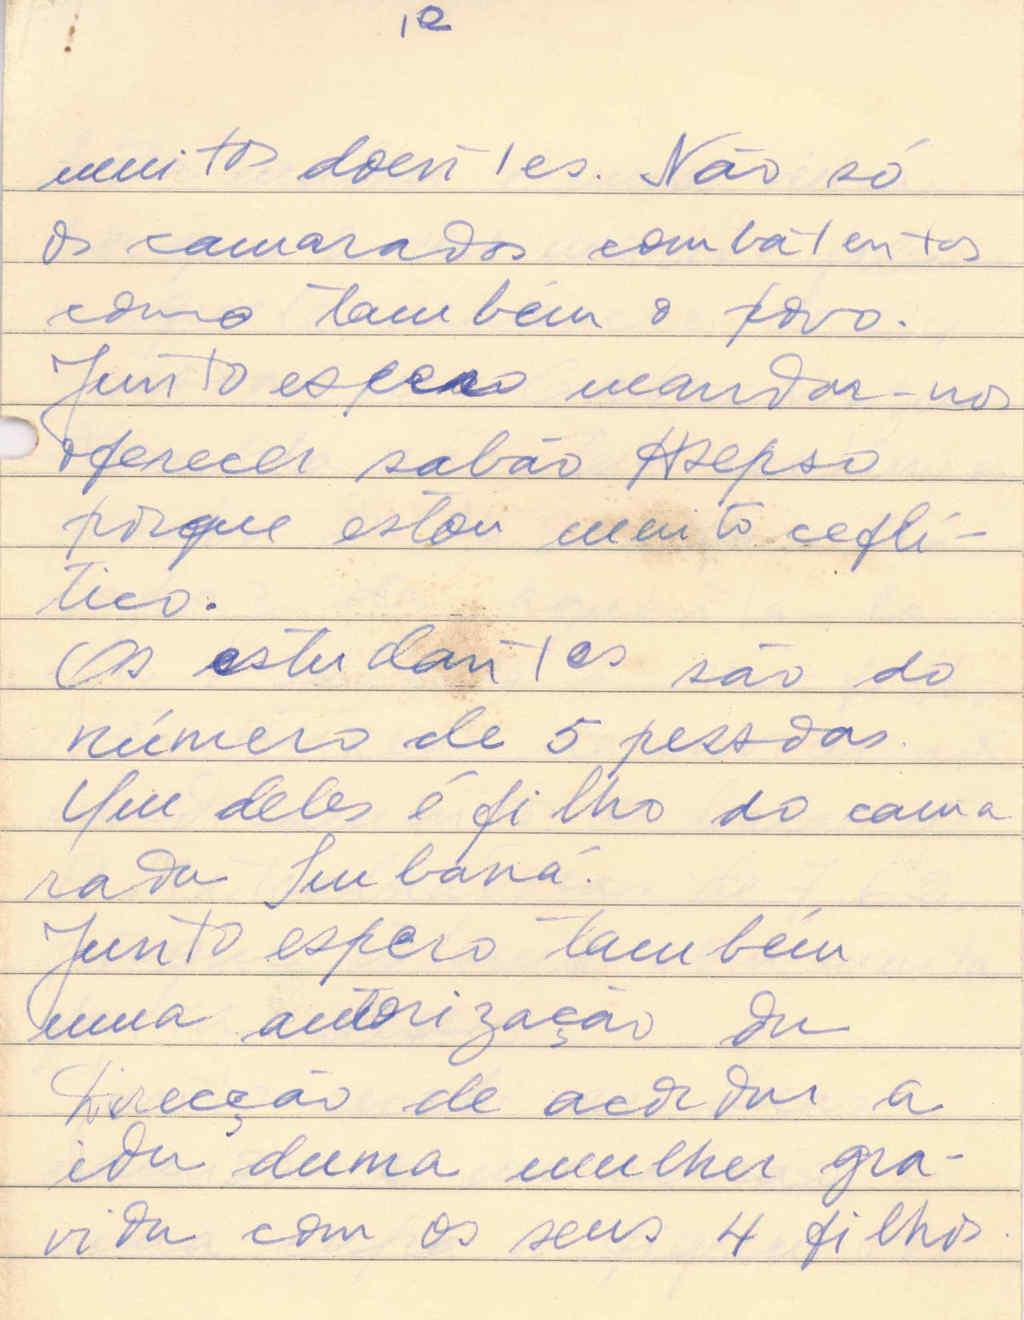 muitos doentes. Não só
os camaradas combatentes
como também o povo.
Junto espero mandar-nos
oferecer sabão Asepso
porque estou muito ceflí-
tico.
Os estudantes são do
número de 5 pessoas.
Um deles é filho do cama
rada Imbaná.
Junto espero também
uma autorização da
Direcção de acordar a
ida duma mulher gra-
vida com os seus 4 filhos.